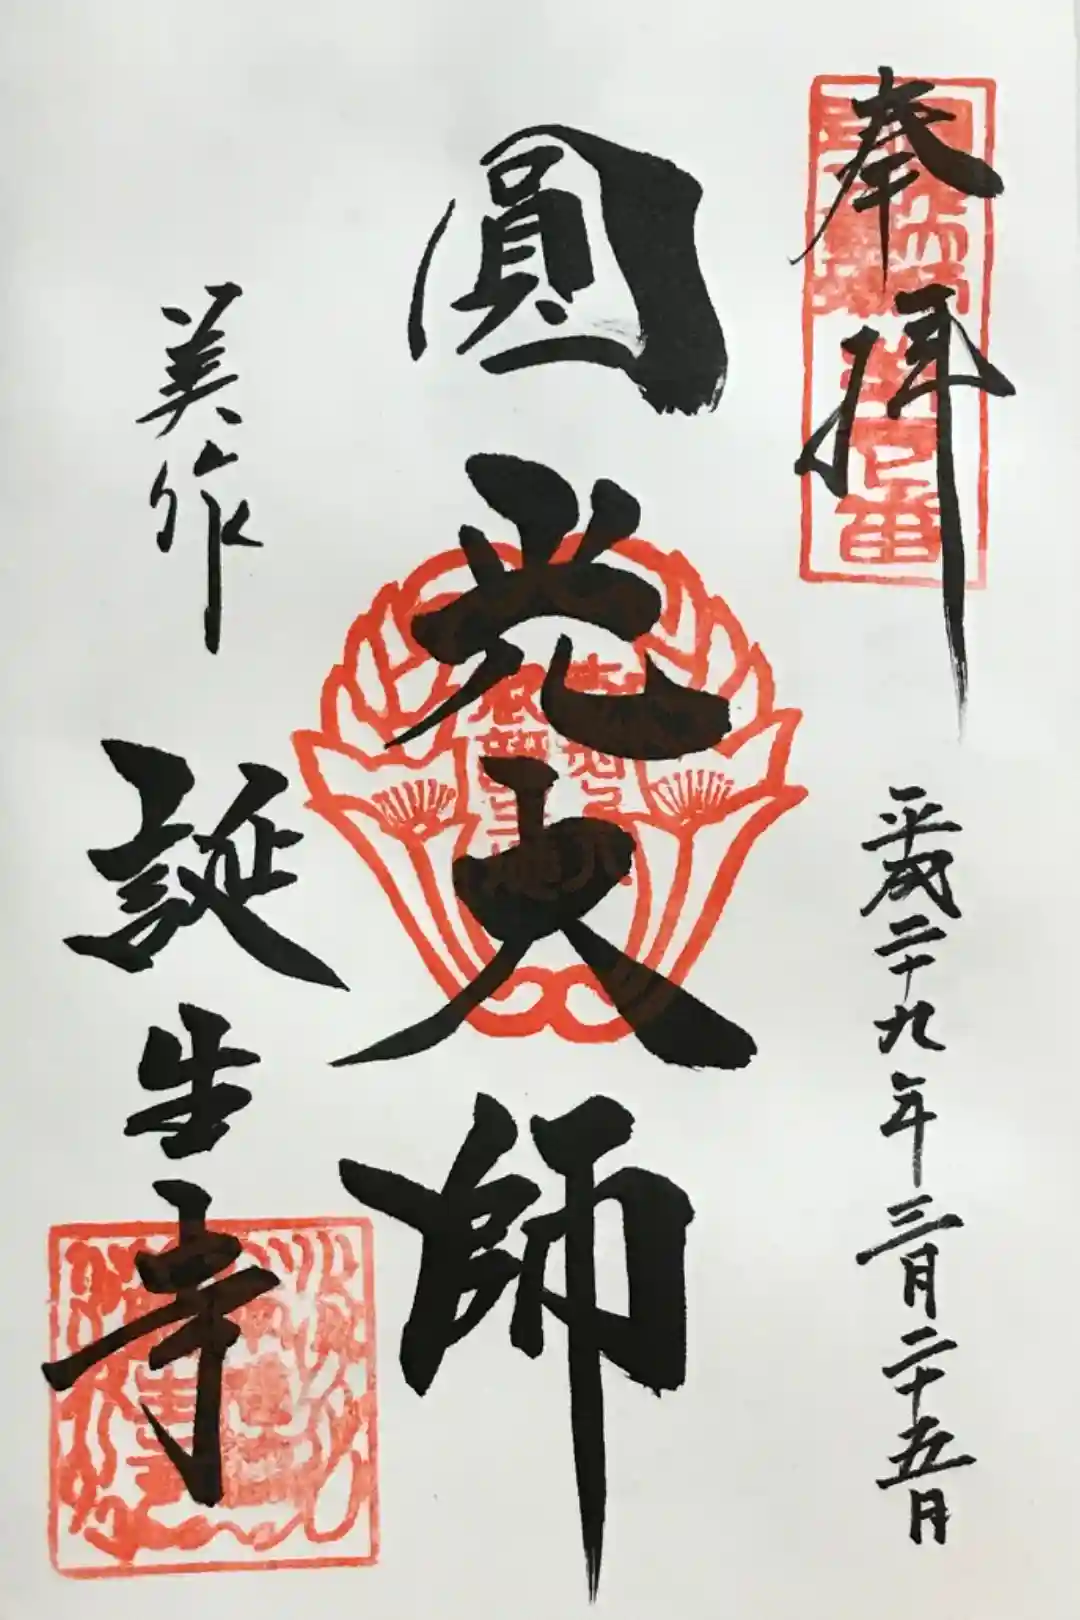 奉拝
平成二十九年三月二十五日
圓光大師
美作
誕生寺